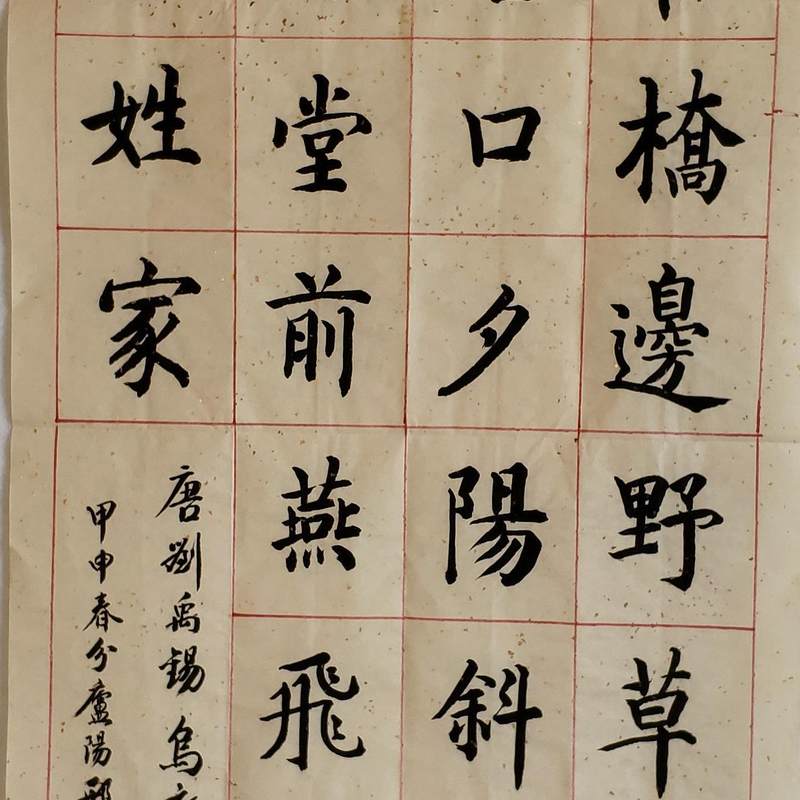 橋邊野草
口夕陽斜
堂前燕飛
姓家
唐劉禹錫烏
甲申春分廬陽